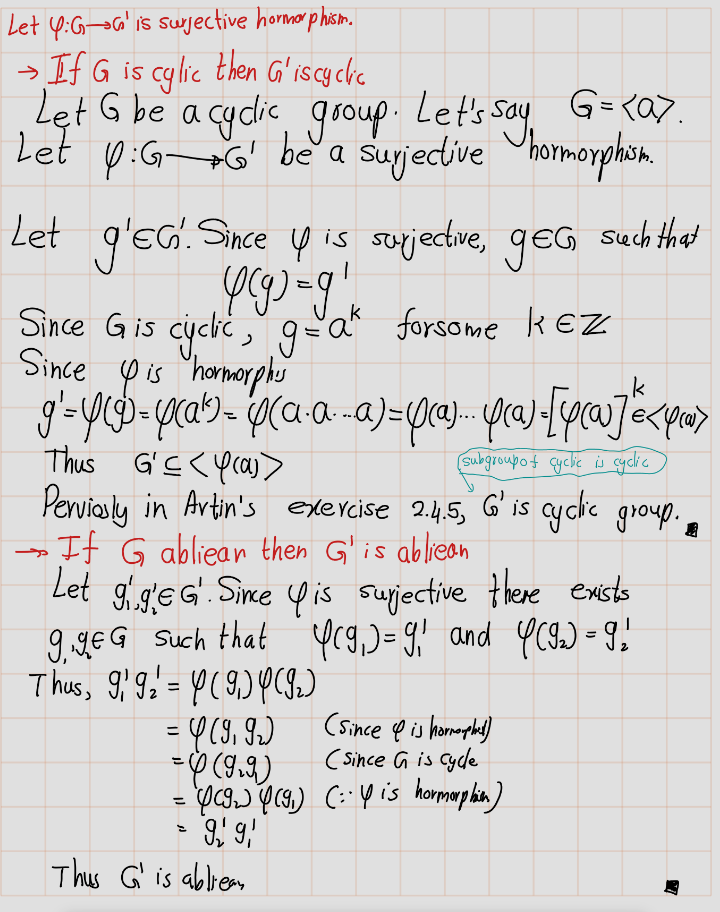 Let φ:G→G' is surjective hormorphism.
→ If G is cylic then G' is cyclic
Let G be a cyclic group. Let's say G = <a>.
Let φ:G→G' be a surjective hormorphism.
Let g'∈G'. Since φ is surjective, g∈G such that
φ(g) = g'
Since G is cyclic, g = a^k for some k ∈ ℤ
Since φ is hormorphis
g' = φ(g) = φ(a^k) = φ(a·a···a) = φ(a)··· φ(a) = [φ(a)]^k ∈ <φ(a)>
Thus G' ⊆ <φ(a)>
subgroup of cyclic is cyclic
Perviosly in Artin's exercise 2.4.5, G' is cyclic group. ∎
→ If G abliean then G' is abliean
Let g₁', g₂' ∈ G'. Since φ is surjective there exists
g₁, g₂ ∈ G such that φ(g₁) = g₁' and φ(g₂) = g₂'
Thus, g₁' g₂' = φ(g₁) φ(g₂)
= φ(g₁ g₂) (since φ is hormorphis)
= φ(g₂g₁) (since G is cycle
= φ(g₂) φ(g₁) (∵ φ is hormorphism)
= g₂' g₁'
Thus G' is abliean ∎